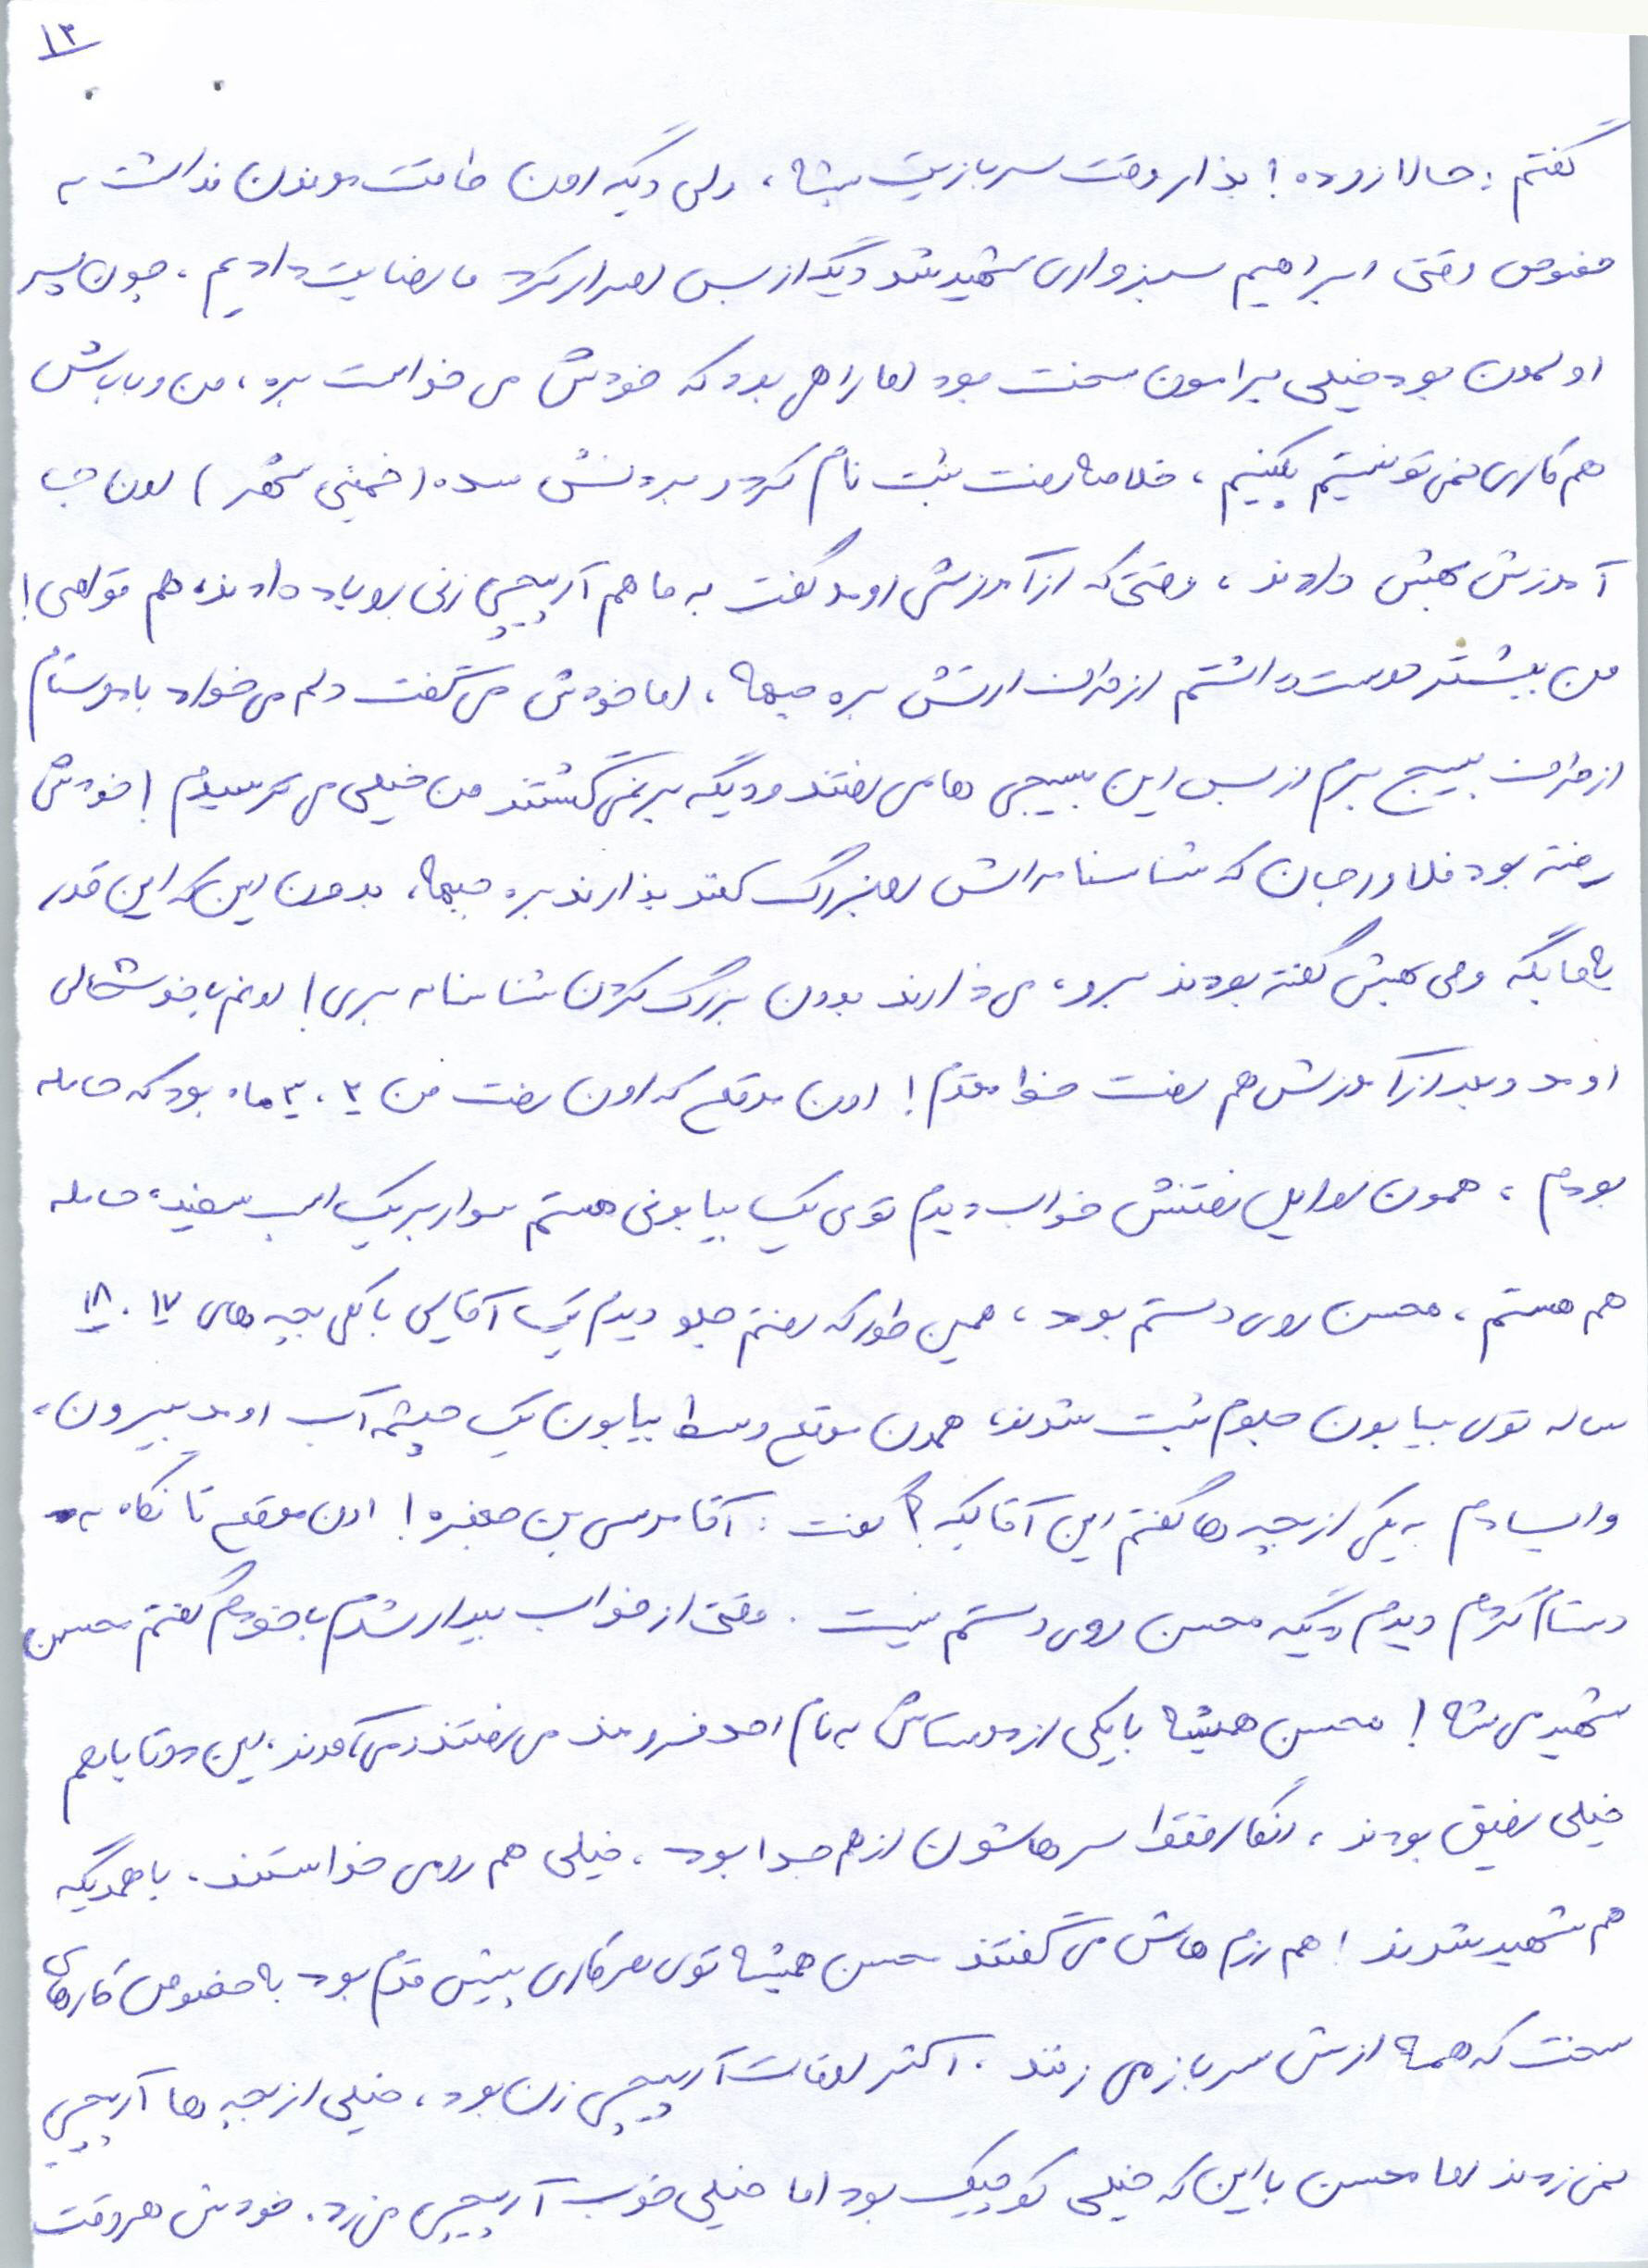 ۱۳
گفتم : حالا زوده ! بذار وقت سربازیت بشه ، ولی دیگه اون طاقت موندن نداشت به
خصوص وقتی ابراهیم سبزواری شهید شد دیگه از بس اصرار کرد ما رضایت دادیم ، چون پسر
اولمون بود خیلی برامون سخت بود اما راهی بود که خودش می خواست بره ، من و باباش
هم کاری نمی تونستیم بکنیم ، خلاصه رفت ثبت نام کرد و بردنش سده ( خمینی شهر ) اون جا
آموزش بهش دادند ، وقتی که از آموزش اومد گفت به ما هم آرپیجی زنی رو یاد دادند، هم
من بیشتر دوست داشتم از طرف ارتش بره جبهه ، اما خودش می گفت دلم می خواد با دوستام
از طرف بسیج برم از بس این بسیجی ها می رفتند و دیگه برنمی گشتند من خیلی می ترسیدم ! خودش
رفته بود فلاورجان که شناسنامه اش رو بزرگ کنند بذارند بره جبهه ، بدون این که این قدر
به ما بگه ولی بهش گفته بودند برو ، می ذارند بدون بزرگ کردن شناسنامه بری ! اونم با خوشحالی
اومد و بعد از آموزش هم رفت خط مقدم ! اون موقع که اون رفت من ۲ ، ۳ ماه بود که حامله
بودم ، همون اوایل رفتنش خواب دیدم توی یک بیابونی هستم سوار بر یک اسب سفید، حامله
هم هستم ، محسن روی دستم بود ، همین طور که رفتم جلو دیدم یک آقایی با کلی بچه های ۱۷ ، ۱۸
ساله توی بیابون جلوم ثبت شدند، همون موقع وسط بیابون یک چشمه آب اومد بیرون ،
وایسادم به یکی از بچه ها گفتم این آقا کیه ؟ گفت : آقا موسی بن جعفره ! اون موقع تا نگاه به
دستام کردم دیدم دیگه محسن روی دستم نیست . وقتی از خواب بیدار شدم با خودم گفتم محسن
شهید می شه ! محسن همیشه با یکی از دوستاش به نام احمد می رفتند و می آمدند، این دوتا با هم
خیلی رفیق بودند ، انگار فقط سرهاشون از هم جدا بود ، خیلی هم رو می خواستند . با همدیگه
هم شهید شدند ! هم رزم هاش می گفتند محسن همیشه توی هر کاری پیش قدم بود به خصوص کارهای
سخت که همه ازش سر باز می زنند . اکثر اوقات آرپیجی زن بود ، خیلی از بچه ها آرپیجی
نمی زدند اما محسن با این که خیلی کوچیک بود اما خیلی خوب آرپیجی می زد . خودش هر وقت